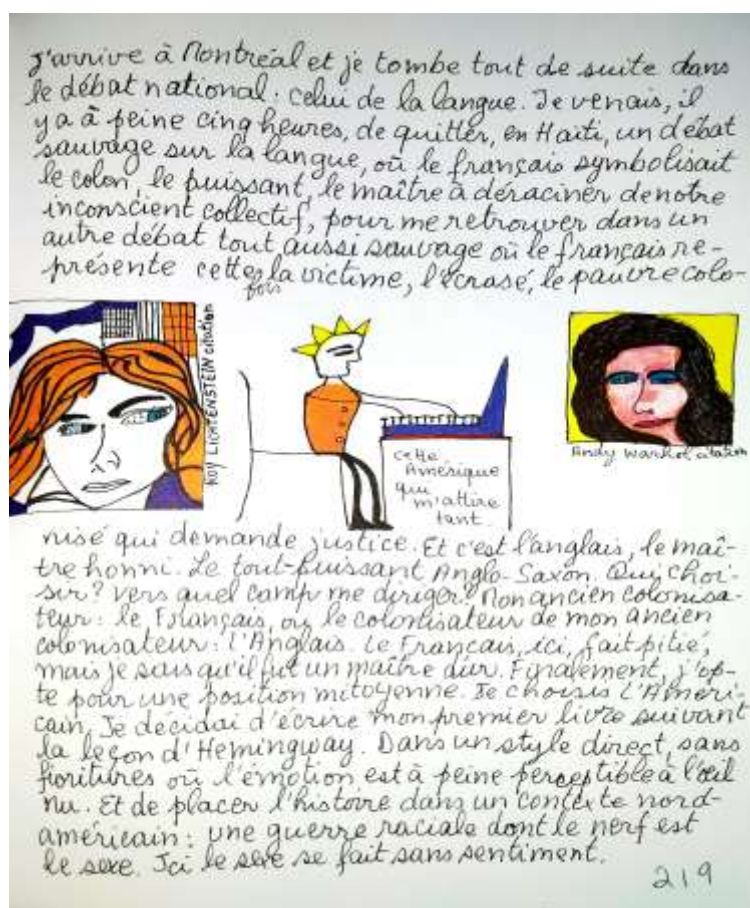 J'arrive à Montréal et je tombe tout de suite dans
le débat national: celui de la langue. Je venais, il
y a à peine cinq heures, de quitter, en Haïti, un débat
sauvage sur la langue, où le français symbolisait
le colon, le puissant, le maître à déraciner de notre
inconscient collectif, pour me retrouver dans un
autre débat tout aussi sauvage où le français re-
présente cette fois la victime, l'écrasé, le pauvre colo-
ROY LICHTENSTEIN citation
cette
Amérique
qui
m'attire
tant
Andy Warhol citation
nisé qui demande justice. Et c'est l'anglais, le maî-
tre honni. Le tout-puissant Anglo-Saxon. Qui choi-
sir? Vers quel camp me diriger? Mon ancien colonisa-
teur: le Français, ou le colonisateur de mon ancien
colonisateur: l'Anglais. Le Français, ici, fait pitié,
mais je sais qu'il fut un maître dur. Finalement, j'op-
te pour une position mitoyenne. Je choisis l'Améri-
cain. Je décidai d'écrire mon premier livre suivant
la leçon d'Hemingway. Dans un style direct, sans
fioritures où l'émotion est à peine perceptible à l'œil
nu. Et de placer l'histoire dans un contexte nord-
américain: une guerre raciale dont le nerf est
le sexe. Ici le sexe se fait sans sentiment.
219